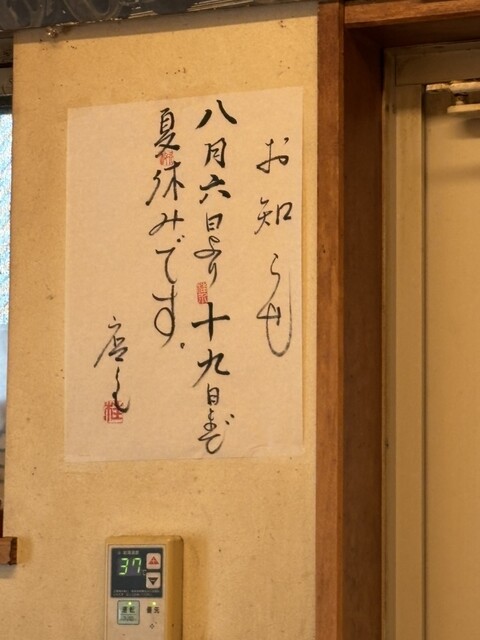 お知らせ
八月六日より十九日まで
夏休みです。
店主
37
運転
優先